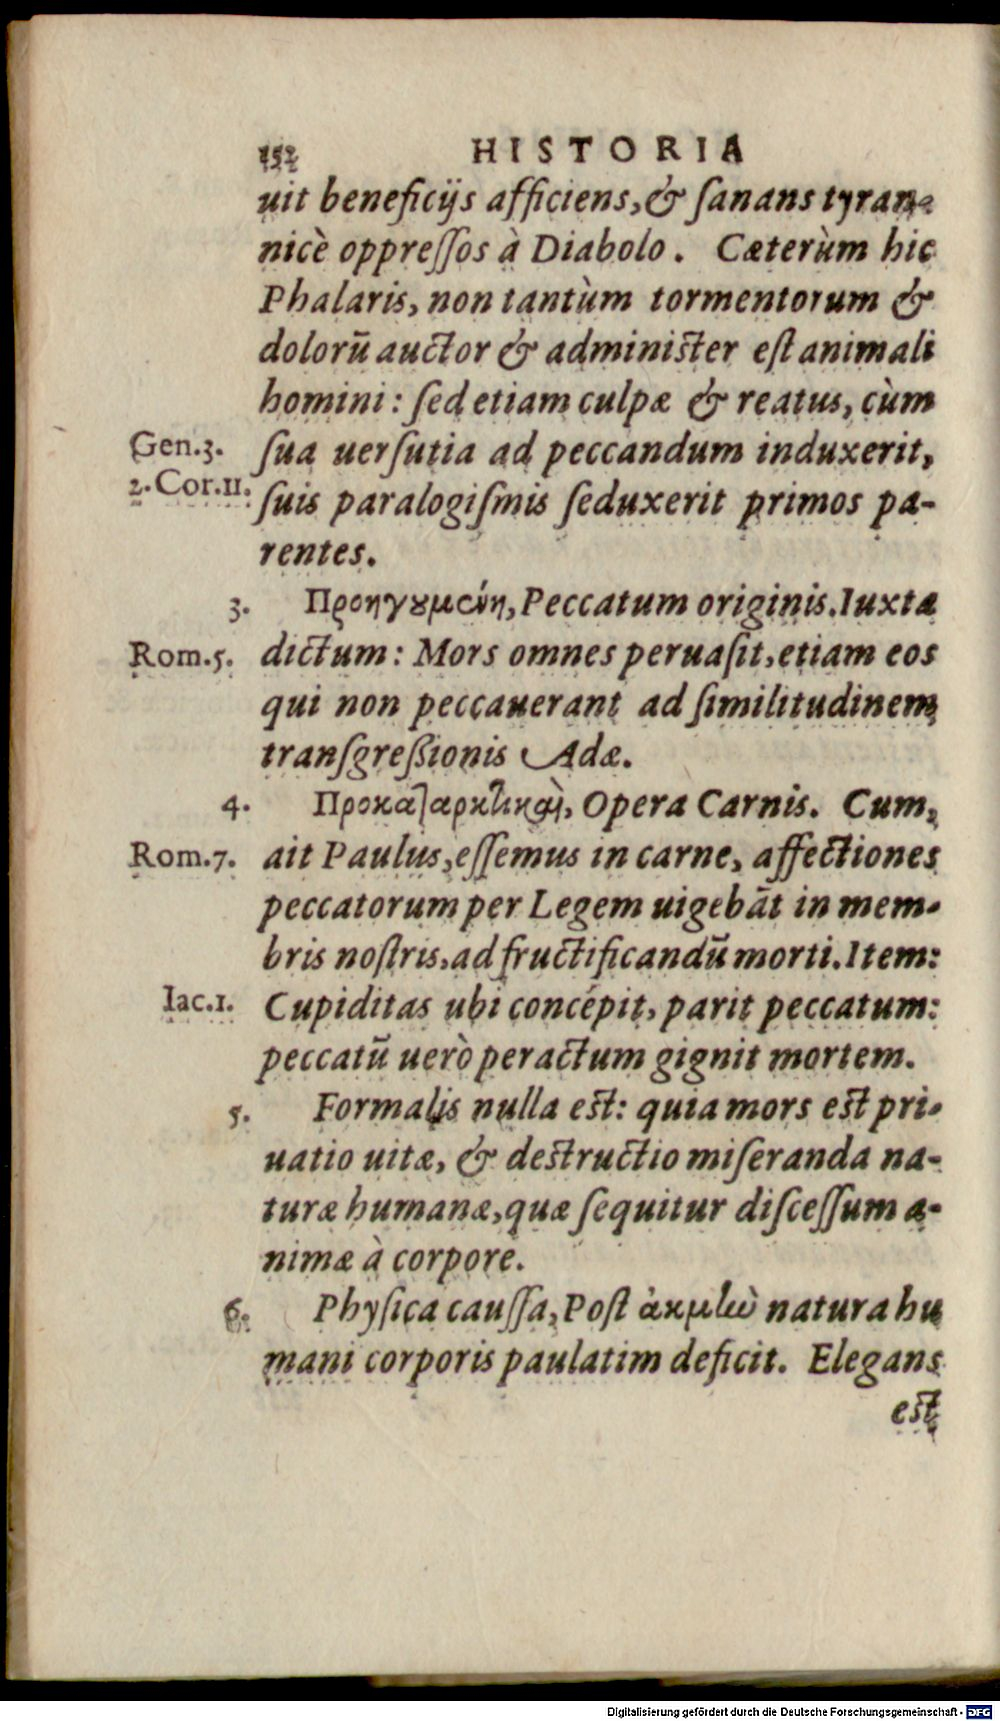 152 HISTORIA
uit beneficijs afficiens, & ſanans tyran-
nicè oppreſſos à Diabolo. Cæterùm hic
Phalaris, non tantùm tormentorum &
dolorū auctor & adminiſter eſt animali
homini: ſed etiam culpæ & reatus, cùm
Gen.3. ſua uerſutia ad peccandum induxerit,
2.Cor.11. ſuis paralogiſmis ſeduxerit primos pa-
rentes.
3. Προηγουμένη, Peccatum originis. Iuxta
Rom.5. dictum: Mors omnes peruaſit, etiam eos
qui non peccauerant ad ſimilitudinem
tranſgreßionis Adæ.
4. Προκαταρκτικαὶ, Opera Carnis. Cum,
Rom.7. ait Paulus, eſſemus in carne, affectiones
peccatorum per Legem uigebāt in mem-
bris noſtris, ad fructificandū morti. Item:
Iac.1. Cupiditas ubi concépit, parit peccatum:
peccatū uerò peractum gignit mortem.
5. Formalis nulla eſt: quia mors eſt pri-
uatio uitæ, & deſtructio miſeranda na-
turæ humanæ, quæ ſequitur diſceſſum a-
nimæ à corpore.
6. Phyſica cauſſa, Poſt ἀκμὴν natura hu
mani corporis paulatim deficit. Elegans
eſt
Digitalisierung gefördert durch die Deutsche Forschungsgemeinschaft - DFG